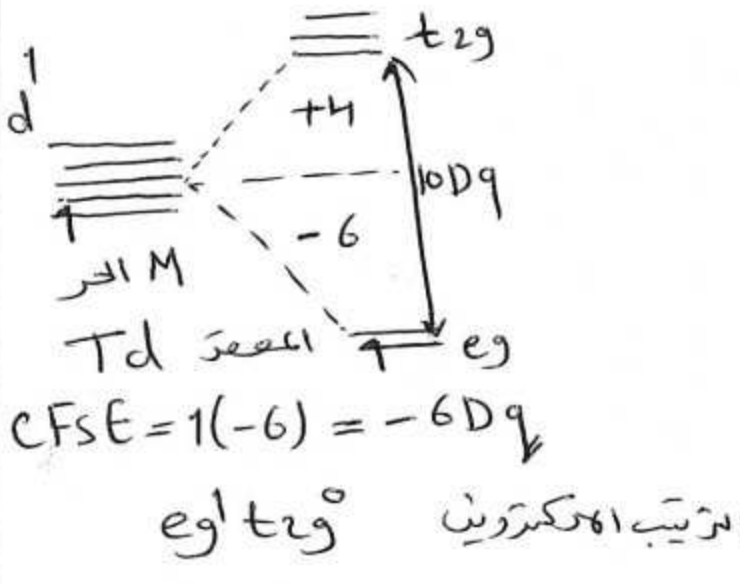 t2g
d¹
+4
10Dq
-6
M الحر
المعقد Td
eg
CFSE = 1(-6) = -6Dq
eg¹ t2g⁰ ترتيب الالكتروني